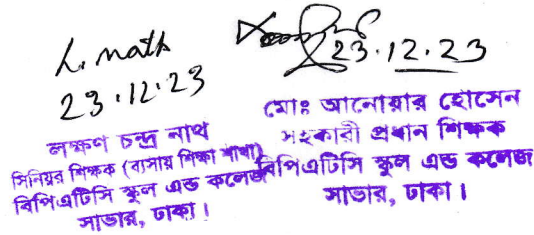 L. Nath
23.12.23
লক্ষণ চন্দ্র নাথ
সিনিয়র শিক্ষক (ব্যসায় শিক্ষা শাখা)
বিপিএটিসি স্কুল এন্ড কলেজ
সাভার, ঢাকা।
23.12.23
মোঃ আনোয়ার হোসেন
সহকারী প্রধান শিক্ষক
বিপিএটিসি স্কুল এন্ড কলেজ
সাভার, ঢাকা।